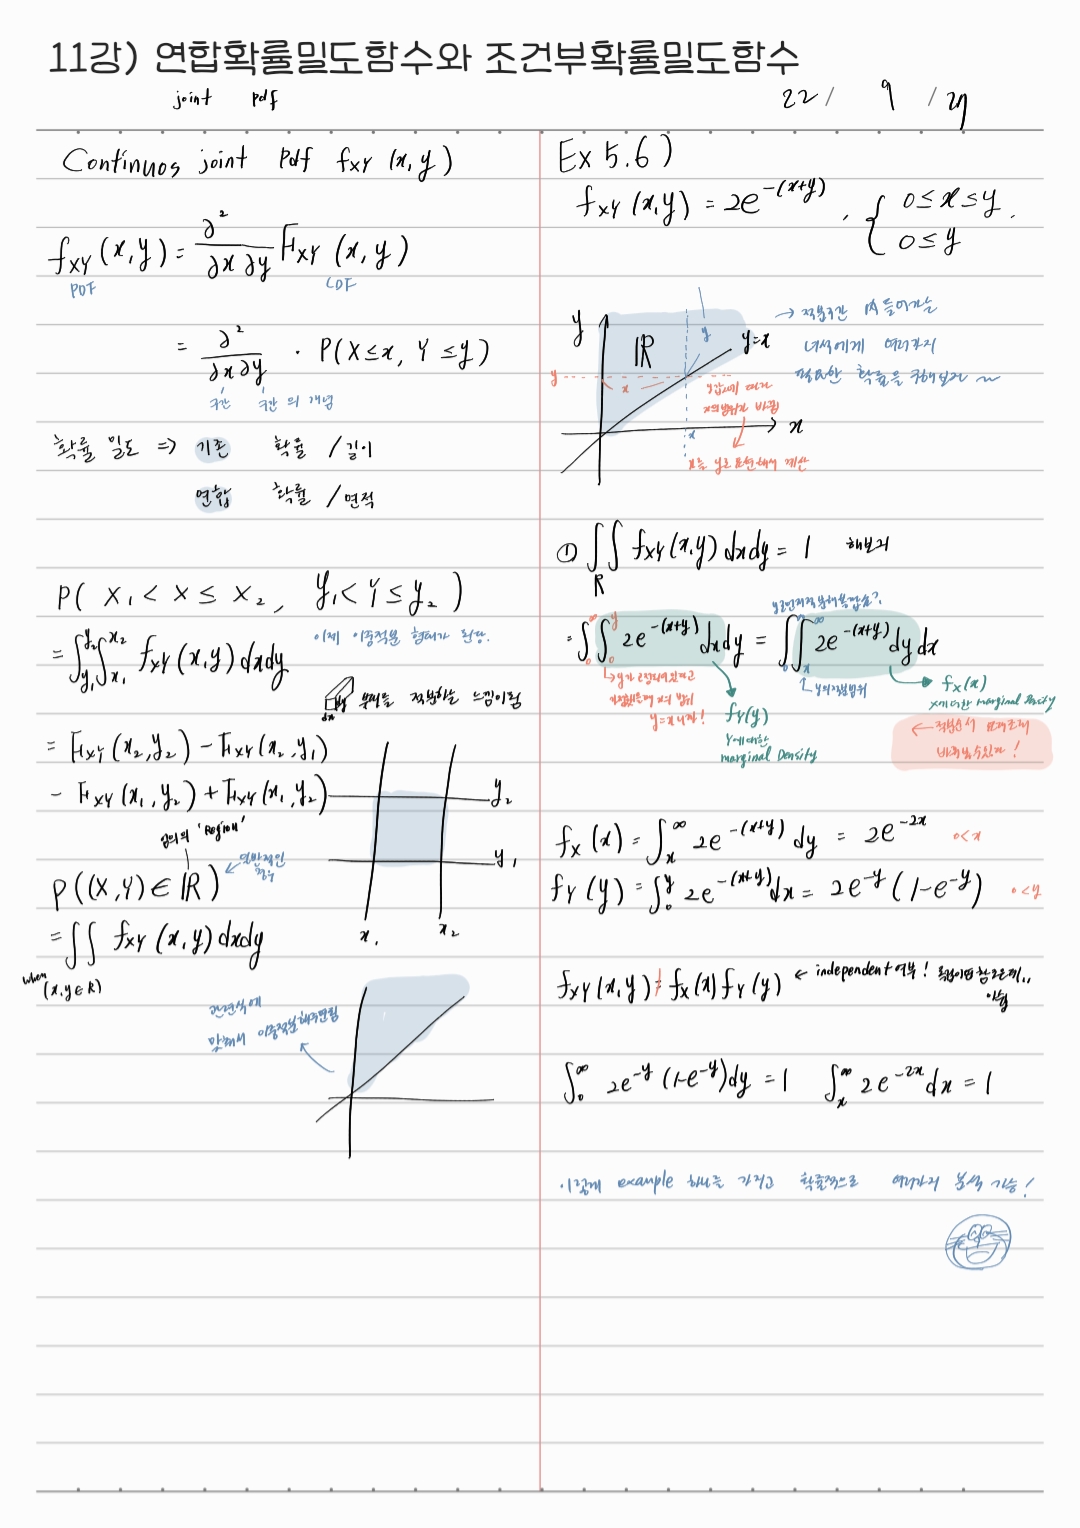 11강) 연합확률밀도함수와 조건부확률밀도함수
joint pdf
22/ 9 /27
Continuos joint Pdf fXY (x,y)
fXY (x,y) = ∂²/∂x∂y FXY (x,y)
PDF CDF
= ∂²/∂x∂y · P(X≤x, Y≤y)
구간 구간의 개념
확률 밀도 => 기존 확률/길이
연합 확률/면적
P( x₁ < X ≤ x₂, y₁ < Y ≤ y₂ )
이제 이중적분 형태가 된다.
= ∫y₁^y₂ ∫x₁^x₂ fXY (x,y) dxdy
부피를 적분하는 느낌이랄
dx dy
= FXY (x₂,y₂) - FXY (x₂,y₁)
- FXY (x₁,y₂) + FXY (x₁,y₂)
y₂
y₁
x₁ x₂
임의의 'Region'
P((X,Y) ∈ ℝ)
← 일반적인
= ∬ fXY (x,y) dxdy
when (x,y ∈ R)
관련식에
맞춰서 이중적분해주면됨
Ex 5.6)
fXY (x,y) = 2e^-(x+y), { 0≤x≤y,
0≤y
y ℝ y y=x
y x
x x
→ 적분구간 IR 들어가는
녀석에게 여러가지
필요한 확률을 구해보자 ~
y값에 따라
x의 범위가 바뀜
x를 y로 표현해서 계산
① ∬R fXY (x,y) dxdy = 1 해보기
= ∫0^∞ ∫0^y 2e^-(x+y) dxdy = ∫0^∞ ∫x^∞ 2e^-(x+y) dydx
y가 고정되어있다고
x의 범위
y=x 니까!
fY(y)
Y에 대한
marginal Density
y의 적분범위
fX(x)
X에 대한 marginal Density
← 적분순서
바뀔수있다!
fX (x) = ∫x^∞ 2e^-(x+y) dy = 2e^-2x 0<x
fY (y) = ∫0^y 2e^-(x+y) dx = 2e^-y (1-e^-y) 0<y
fXY (x,y) ≠ fX (x) fY (y) ← independent 여부!
∫0^∞ 2e^-y (1-e^-y) dy = 1 ∫x^∞ 2e^-2x dx = 1
이렇게 example 하나를 가지고 확률적으로 여러가지 분석 가능!